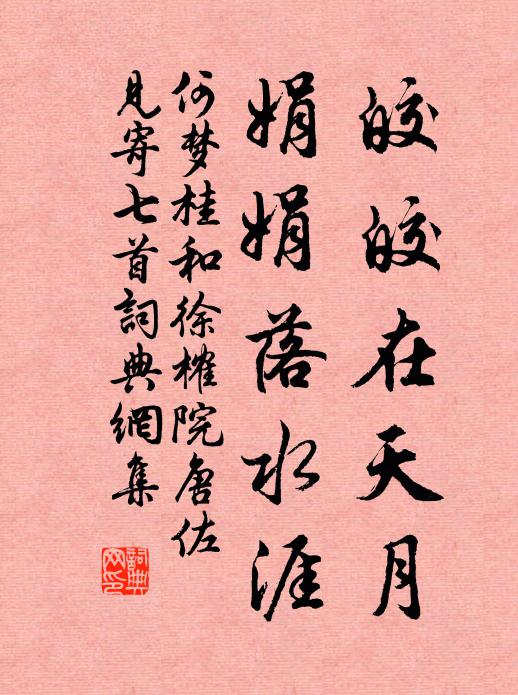 皎皎在天月
娟娟落水涯
何梦桂和徐榷院唐佐
見寄七首詞典網集
詞典网印